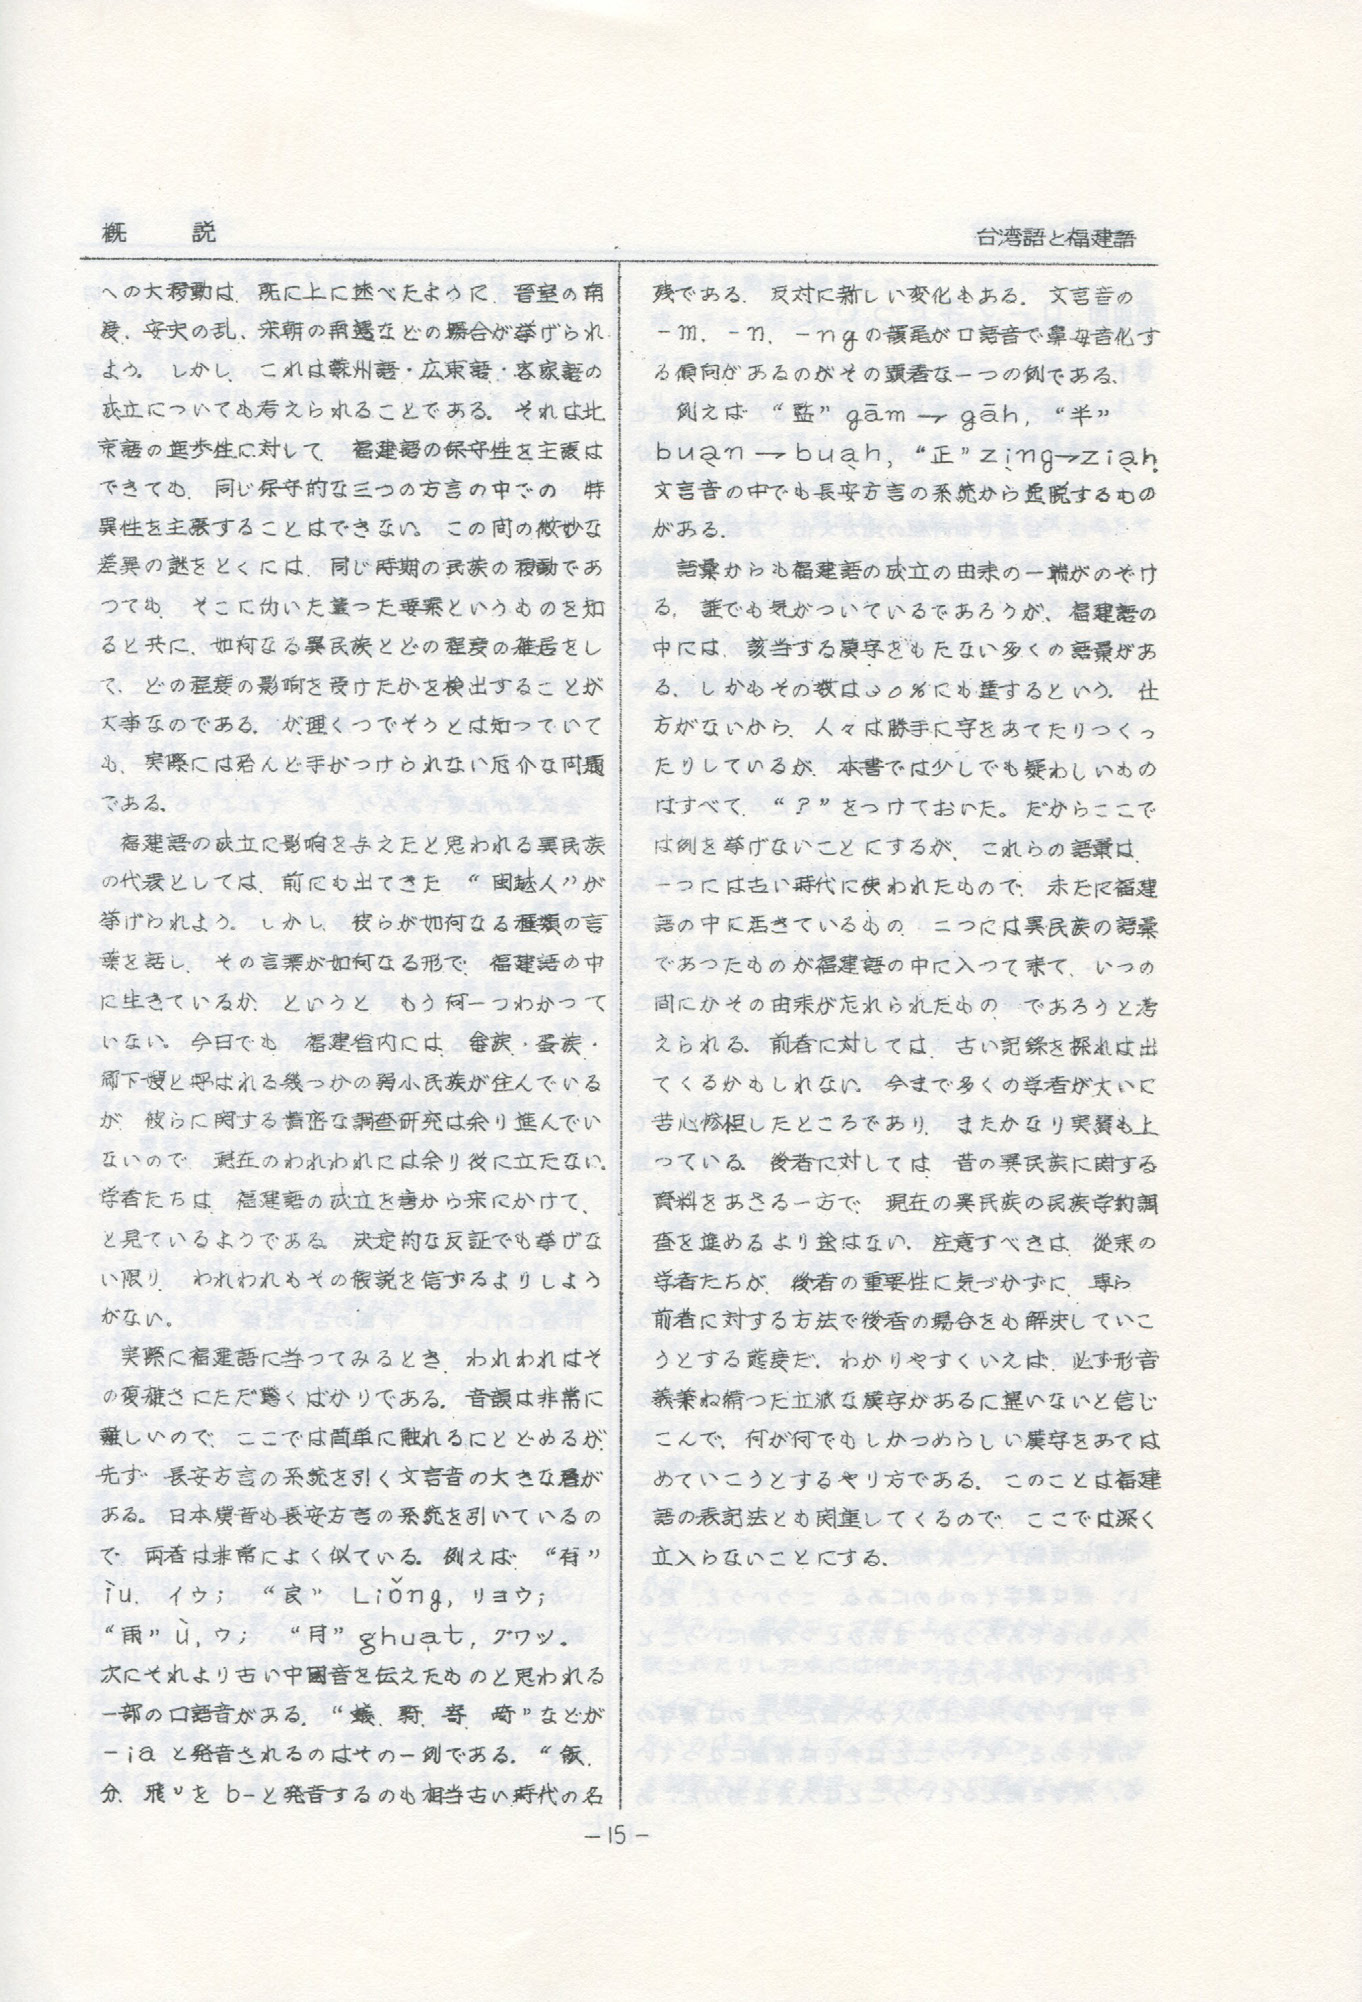 概　説
台湾語と福建語
への大移動は、既に上に述べたように、晋室の南
渡、安史の乱、宋朝の南遷などの場合が挙げられ
よう。しかし、これは蘇州語・広東語・客家語の
成立についても考えられることである。それは北
京語の進歩性に対して、福建語の保守性を主張は
できても、同じ保守的な三つの方言の中での、特
異性を主張することはできない。この間の微妙な
差異の謎をとくには、同じ時期の民族の移動であ
つても、そこに働いた違つた要素というものを知
ると共に、如何なる異民族とどの程度の雑居をし
て、どの程度の影響を受けたかを検出することが
大事なのである。が理くつでそうとは知つていて
も、実際には殆んど手がつけられない厄介な問題
である。
福建語の成立に影響を与えたと思われる異民族
の代表としては、前にも出てきた “閩越人”が
挙げられよう。しかし、彼らが如何なる種類の言
葉を話し、その言葉が如何なる形で、福建語の中
に生きているか、というと、もう何一つわかつて
いない。今日でも、福建省内には、畲族・蛋族・
郷下嫂と呼ばれる幾つかの弱小民族が住んでいる
が、彼らに関する精密な調査研究は余り進んでい
ないので、現在のわれわれには余り役に立たない。
学者たちは、福建語の成立を唐から宋にかけて、
と見ているようである。決定的な反証でも挙げな
い限り、われわれもその仮説を信ずるよりしよう
がない。
実際に福建語に当つてみるとき、われわれはそ
の複雑さにただ驚くばかりである。音韻は非常に
難しいので、ここでは簡単に触れるにとどめるが、
先ず、長安方言の系統を引く文言音の大きな層が
ある。日本漢音も長安方言の系統を引いているの
で、両者は非常によく似ている。例えば、“有”
ìu, イウ; “良” Liǒng, リヨウ;
“雨” ù, ウ; “月” ghuạt, グワツ。
次にそれより古い中国音を伝えたものと思われる
一部の口語音がある。“蟻、騎、寄、崎”などが
-ia と発音されるのはその一例である。“飯、
分、飛”を b-と発音するのも相当古い時代の名
残である。反対に新しい変化もある。文言音の
-m, -n, -ngの韻尾が口語音で鼻母音化す
る傾向があるのがその顕著な一つの例である。
例えば “監” gām → gāh, “半”
buạn → buạh, “正” zịng→ziạh.
文言音の中でも長安方言の系統から逸脱するもの
がある。
語彙からも福建語の成立の由来の一端がのぞけ
る。誰でも気がついているであろうが、福建語の
中には、該当する漢字をもたない多くの語彙があ
る、しかもその数は30%にも達するという。仕
方がないから、人々は勝手に字をあてたりつくっ
たりしているが、本書では少しでも疑わしいもの
はすべて、“？”をつけておいた。だからここで
は例を挙げないことにするが、これらの語彙は、
一つには古い時代に使われたもので、未だに福建
語の中に活きているもの、二つには異民族の語彙
であつたものが福建語の中に入つて来て、いつの
間にかその由来が忘れられたもの、であろうと考
えられる。前者に対しては、古い記録を探れば出
てくるかもしれない。今まで多くの学者が大いに
苦心惨憺したところであり、またかなり実績も上
つている。後者に対しては、昔の異民族に関する
資料をあさる一方で、現在の異民族の民族学的調
査を進めるより途はない。注意すべきは、従来の
学者たちが、後者の重要性に気づかずに、専ら
前者に対する方法で後者の場合をも解決していこ
うとする態度だ。わかりやすくいえば、必ず形音
義兼ね備つた立派な漢字があるに違いないと信じ
こんで、何が何でもしかつめらしい漢字をあては
めていこうとするやり方である。このことは福建
語の表記法とも関連してくるので、ここでは深く
立入らないことにする。
-15-